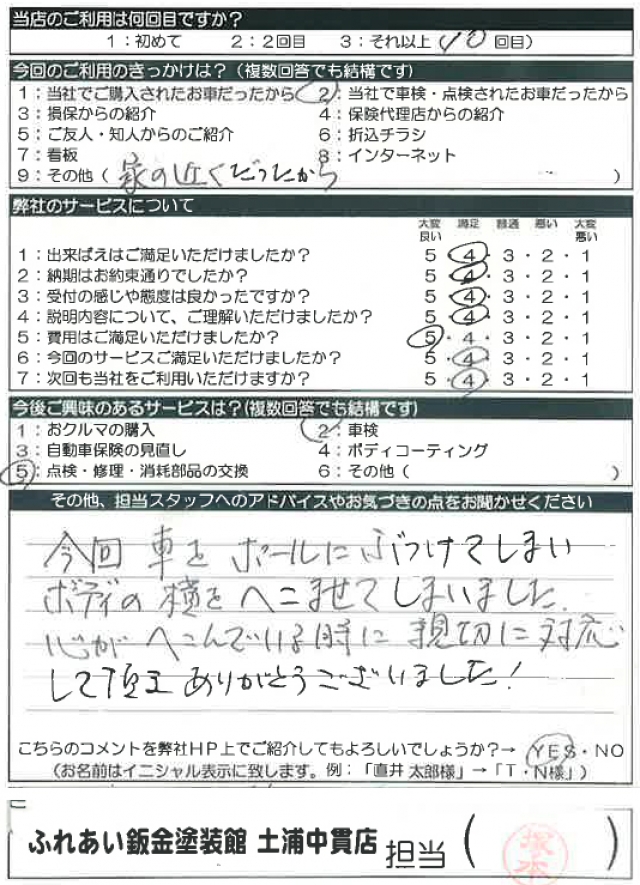 当店のご利用は何回目ですか?
1:初めて 2:2回目 3:それ以上(10回目)
今回のご利用のきっかけは?(複数回答でも結構です)
1:当社でご購入されたお車だったから 2:当社で車検・点検されたお車だったから
3:損保からの紹介 4:保険代理店からの紹介
5:ご友人・知人からのご紹介 6:折込チラシ
7:看板 8:インターネット
9:その他(家の近くだったから)
弊社のサービスについて
大変良い 満足 普通 悪い 大変悪い
1:出来ばえはご満足いただけましたか? 5・4・3・2・1
2:納期はお約束通りでしたか? 5・4・3・2・1
3:受付の感じや態度は良かったですか? 5・4・3・2・1
4:説明内容について、ご理解いただけましたか? 5・4・3・2・1
5:費用はご満足いただけましたか? 5・4・3・2・1
6:今回のサービスご満足いただけましたか? 5・4・3・2・1
7:次回も当社をご利用いただけますか? 5・4・3・2・1
今後ご興味のあるサービスは?(複数回答でも結構です)
1:おクルマの購入 2:車検
3:自動車保険の見直し 4:ボディコーティング
5:点検・修理・消耗部品の交換 6:その他( )
その他、担当スタッフへのアドバイスやお気づきの点をお聞かせください
今回 車をポールにぶつけてしまい
ボディの横をへこませてしまいました。
心がへこんでいる時に親切に対応
して頂き ありがとうございました!
こちらのコメントを弊社HP上でご紹介してもよろしいでしょうか?→ YES・NO
(お名前はイニシャル表示に致します。例:「直井 太郎様」→「T・N様」)
ふれあい鈑金塗装館 土浦中貫店 担当( 塚本 )